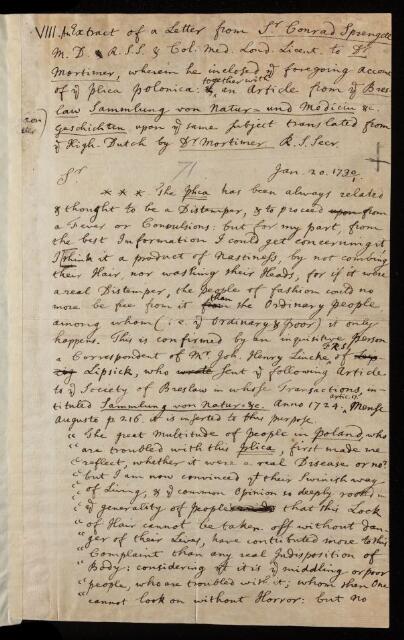 VIII. An Extract of a Letter from Sr. Conrad Sprengell
M. D. R. S. S. & Col. Med. Lond. Licent. to Dr.
Mortimer, wherein he inclosed ye foregoing Account
of ye Plica Polonica: together with an Article from ye Bres-
law Sammlung von Natur- und Medicin &c.
Geschichten upon ye same subject translated from
ye High Dutch by Dr Mortimer R. S. Secr.
71
Sr Jan. 20. 1730
* * * The plica has been always related
& thought to be a Distemper, & to proceed upon from
a Fever or Convulsions: but for my part, from
the best Information I could get concerning it,
I think it a product of Nastiness, by not combing
their Hair, nor washing their Heads, for if it were
a real Distemper, the People of fashion could no
more be free from it than the Ordinary people
among whom (i. e. ye ordinary & poor) it only
happens. This is confirmed by an inquisitive Person
a Correspondent of Mr. Joh. Henry Lincke F.R.S. of
Lipsick, who wrote sent ye following Article
to ye Society of Breslaw in whose Transactions, in-
tituled Sammlung von Natur &c. Anno 1724. Mense
Augusto p. 216. it is inserted to this purpose.
"The great Multitude of People in Poland, who
"are troubled with this plica, first made me
"reflect, whether it were a real Disease or no?
"but I am now convinced yt their Swinish way
"of Living, & ye common Opinion so deeply rooted in
"ye generality of People that this Lock
"of Hair cannot be taken off without Dan-
"ger of their Lives, have contributed more to this
"Complaint than any real Indisposition of
"Body: considering yt it is ye middling or poor
"people, who are troubled with it; whom than One
"cannot look on without Horror: but no